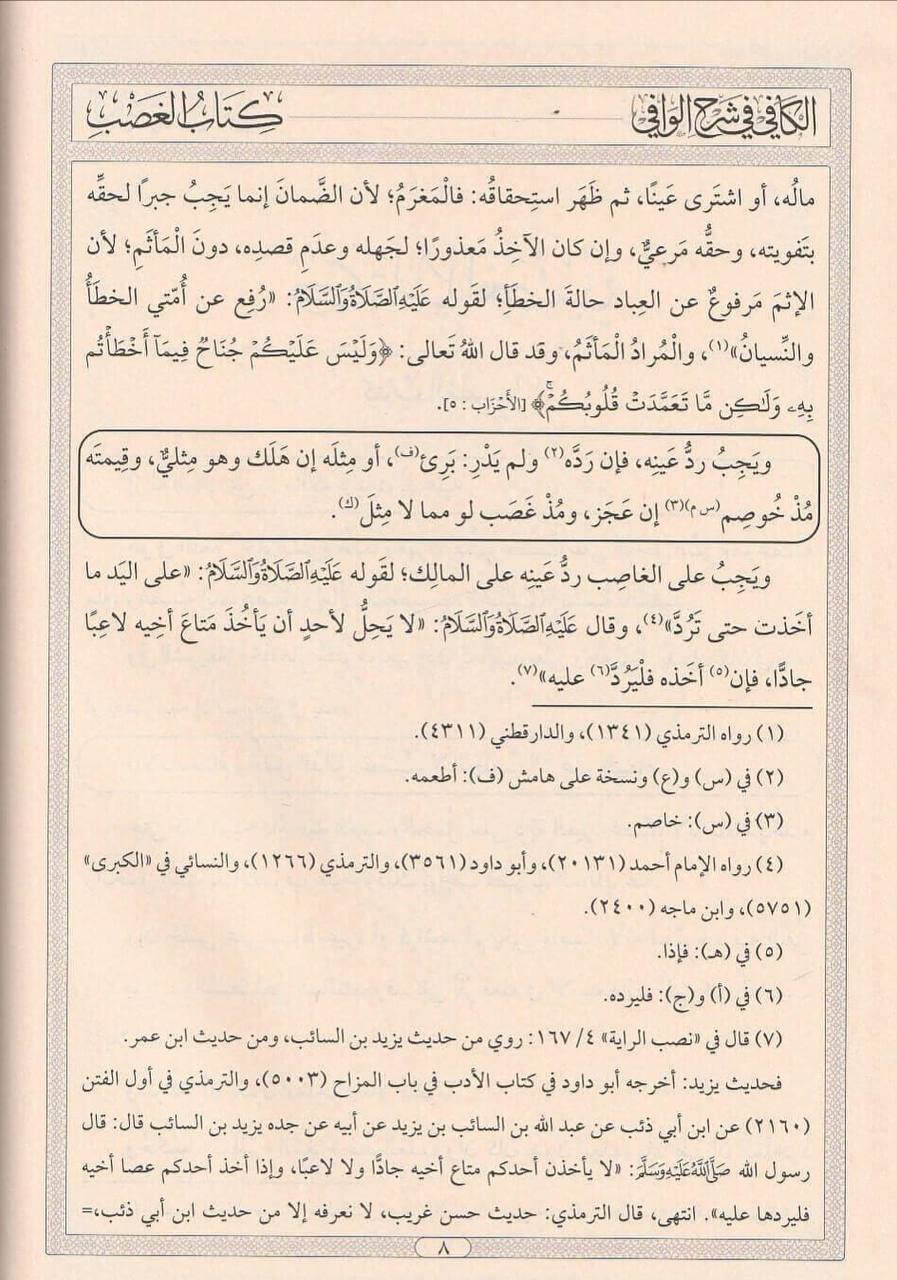 الكافي في شرح الوافي
كتاب الغصب
مالُه، أو اشتَرى عَينًا، ثم ظَهَر استِحقاقُه: فالْمَغرَمُ؛ لأن الضَّمانَ إنما يَجِبُ جبرًا لحقِّه
بتَفويته، وحقُّه مَرعيٌّ، وإن كان الآخِذُ مَعذورًا؛ لجَهله وعدَمِ قصدِه، دونَ الْمَأثَمِ؛ لأن
الإثمَ مَرفوعٌ عن العِباد حالةَ الخطَأِ؛ لقَوله عَلَيْهِ الصَّلَاةُ وَالسَّلَامُ: «رُفِع عن أُمّتي الخطَأُ
والنِّسيانُ»(١)، والْمُرادُ الْمَأثَمُ، وقد قال اللهُ تَعالى: ﴿وَلَيْسَ عَلَيْكُمْ جُنَاحٌ فِيمَآ أَخْطَأْتُم
بِهِۦ وَلَٰكِن مَّا تَعَمَّدَتْ قُلُوبُكُمْۚ﴾ [الأحْزَاب : ٥].
ويَجِبُ ردُّ عَينِه، فإن رَدَّه(٢) ولم يَدْرِ: بَرِئ(ف)، أو مِثلَه إن هَلَك وهو مِثليٌّ، وقِيمتَه
مُذْ خُوصِم(س م)(٣) إن عَجَز، ومُذْ غَصَب لو مما لا مِثلَ(ك).
ويَجِبُ على الغاصِب ردُّ عَينِه على المالِك؛ لقَوله عَلَيْهِ الصَّلَاةُ وَالسَّلَامُ: «على اليَد ما
أخَذت حتى تَرُدَّ»(٤)، وقال عَلَيْهِ الصَّلَاةُ وَالسَّلَامُ: «لا يَحِلُّ لأحدٍ أن يَأخُذَ مَتاعَ أخيه لاعِبًا
جادًّا، فإن(٥) أخَذه فلْيَرُدَّ(٦) عليه»(٧).
(١) رواه الترمذي (١٣٤١)، والدارقطني (٤٣١١).
(٢) في (س) و(ع) ونسخة على هامش (ف): أطعمه.
(٣) في (س): خاصم.
(٤) رواه الإمام أحمد (٢٠١٣١)، وأبو داود (٣٥٦١)، والترمذي (١٢٦٦)، والنسائي في «الكبرى»
(٥٧٥١)، وابن ماجه (٢٤٠٠).
(٥) في (هـ): فإذا.
(٦) في (أ) و(ج): فليرده.
(٧) قال في «نصب الراية» ٤/ ١٦٧: روي من حديث يزيد بن السائب، ومن حديث ابن عمر.
فحديث يزيد: أخرجه أبو داود في كتاب الأدب في باب المزاح (٥٠٠٣)، والترمذي في أول الفتن
(٢١٦٠) عن ابن أبي ذئب عن عبد الله بن السائب بن يزيد عن أبيه عن جده يزيد بن السائب قال: قال
رسول الله صَلَّى اللَّهُ عَلَيْهِ وَسَلَّمَ: «لا يأخذن أحدكم متاع أخيه جادًّا ولا لاعبًا، وإذا أخذ أحدكم عصا أخيه
فليردها عليه». انتهى، قال الترمذي: حديث حسن غريب، لا نعرفه إلا من حديث ابن أبي ذئب،=
٨